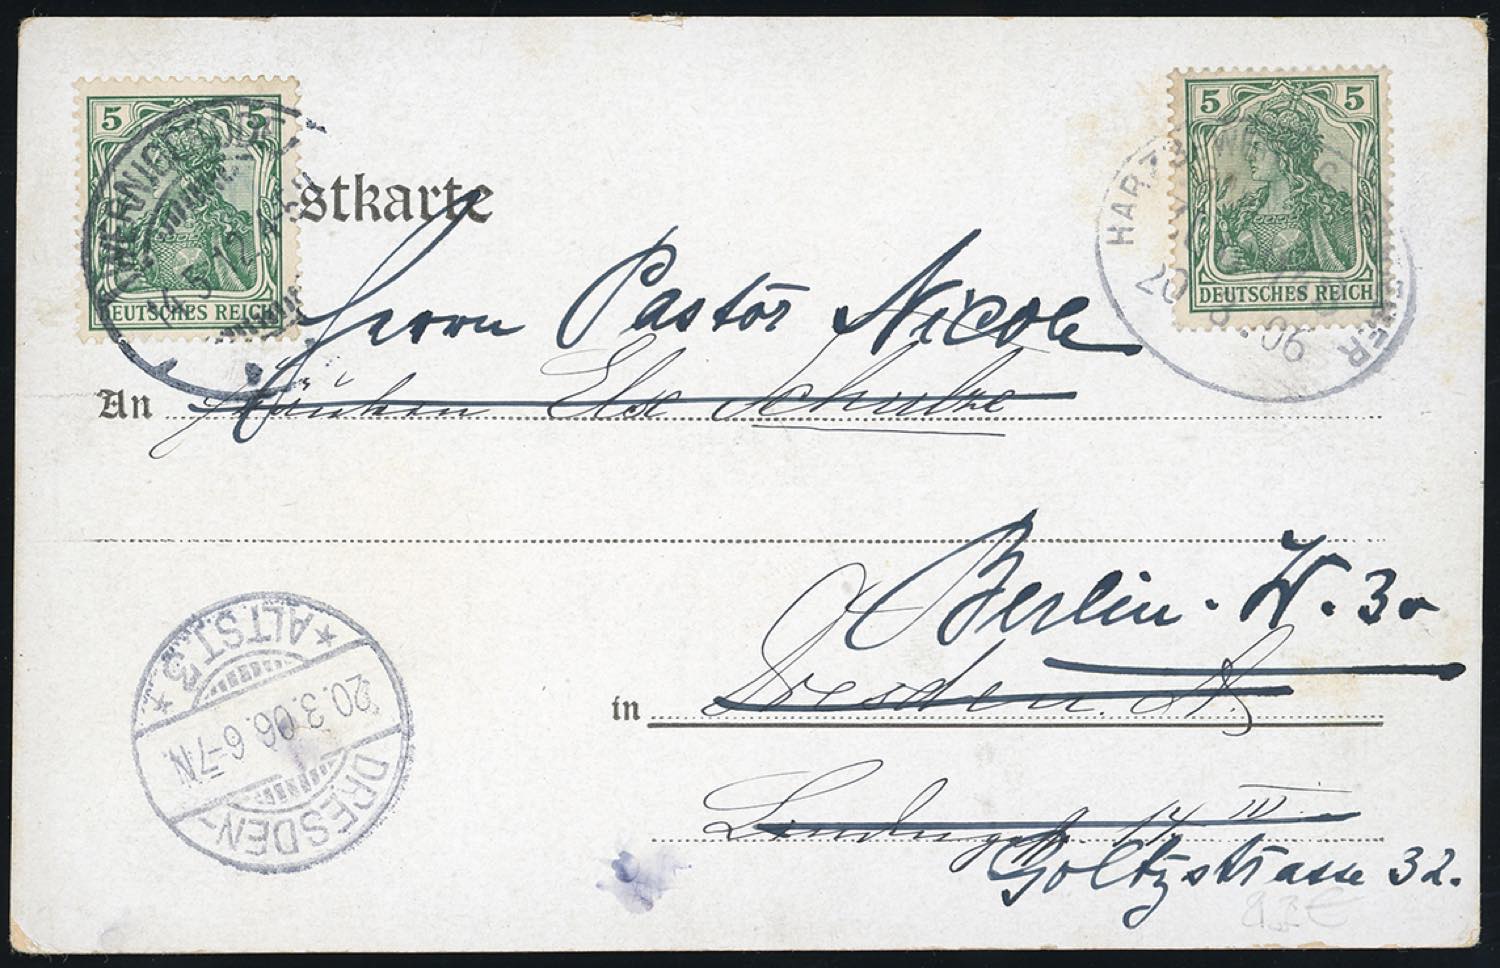 5 5
DEUTSCHES REICH
WERNIGERODE
14.5.12
5 5
DEUTSCHES REICH
HARZB WE
20
06
ER
stkarte
Herrn Pastor Nicole
An Fräulein Else Schulze
Berlin. W. 30
in Dresden. A.
14 III
Goltzstrasse 32.
DRESDEN-
20.3.06. 6-7N.
* ALTST. 3 *